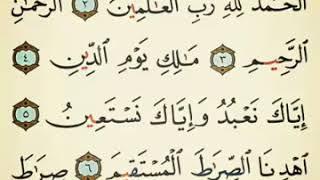 الْحَمْدُ لِلَّهِ رَبِّ الْعَالَمِينَ ٢ الرَّحْمَٰنِ
الرَّحِيمِ ٣ مَالِكِ يَوْمِ الدِّينِ ٤
إِيَّاكَ نَعْبُدُ وَإِيَّاكَ نَسْتَعِينُ ٥
اهْدِنَا الصِّرَاطَ الْمُسْتَقِيمَ ٦ صِرَاطَ